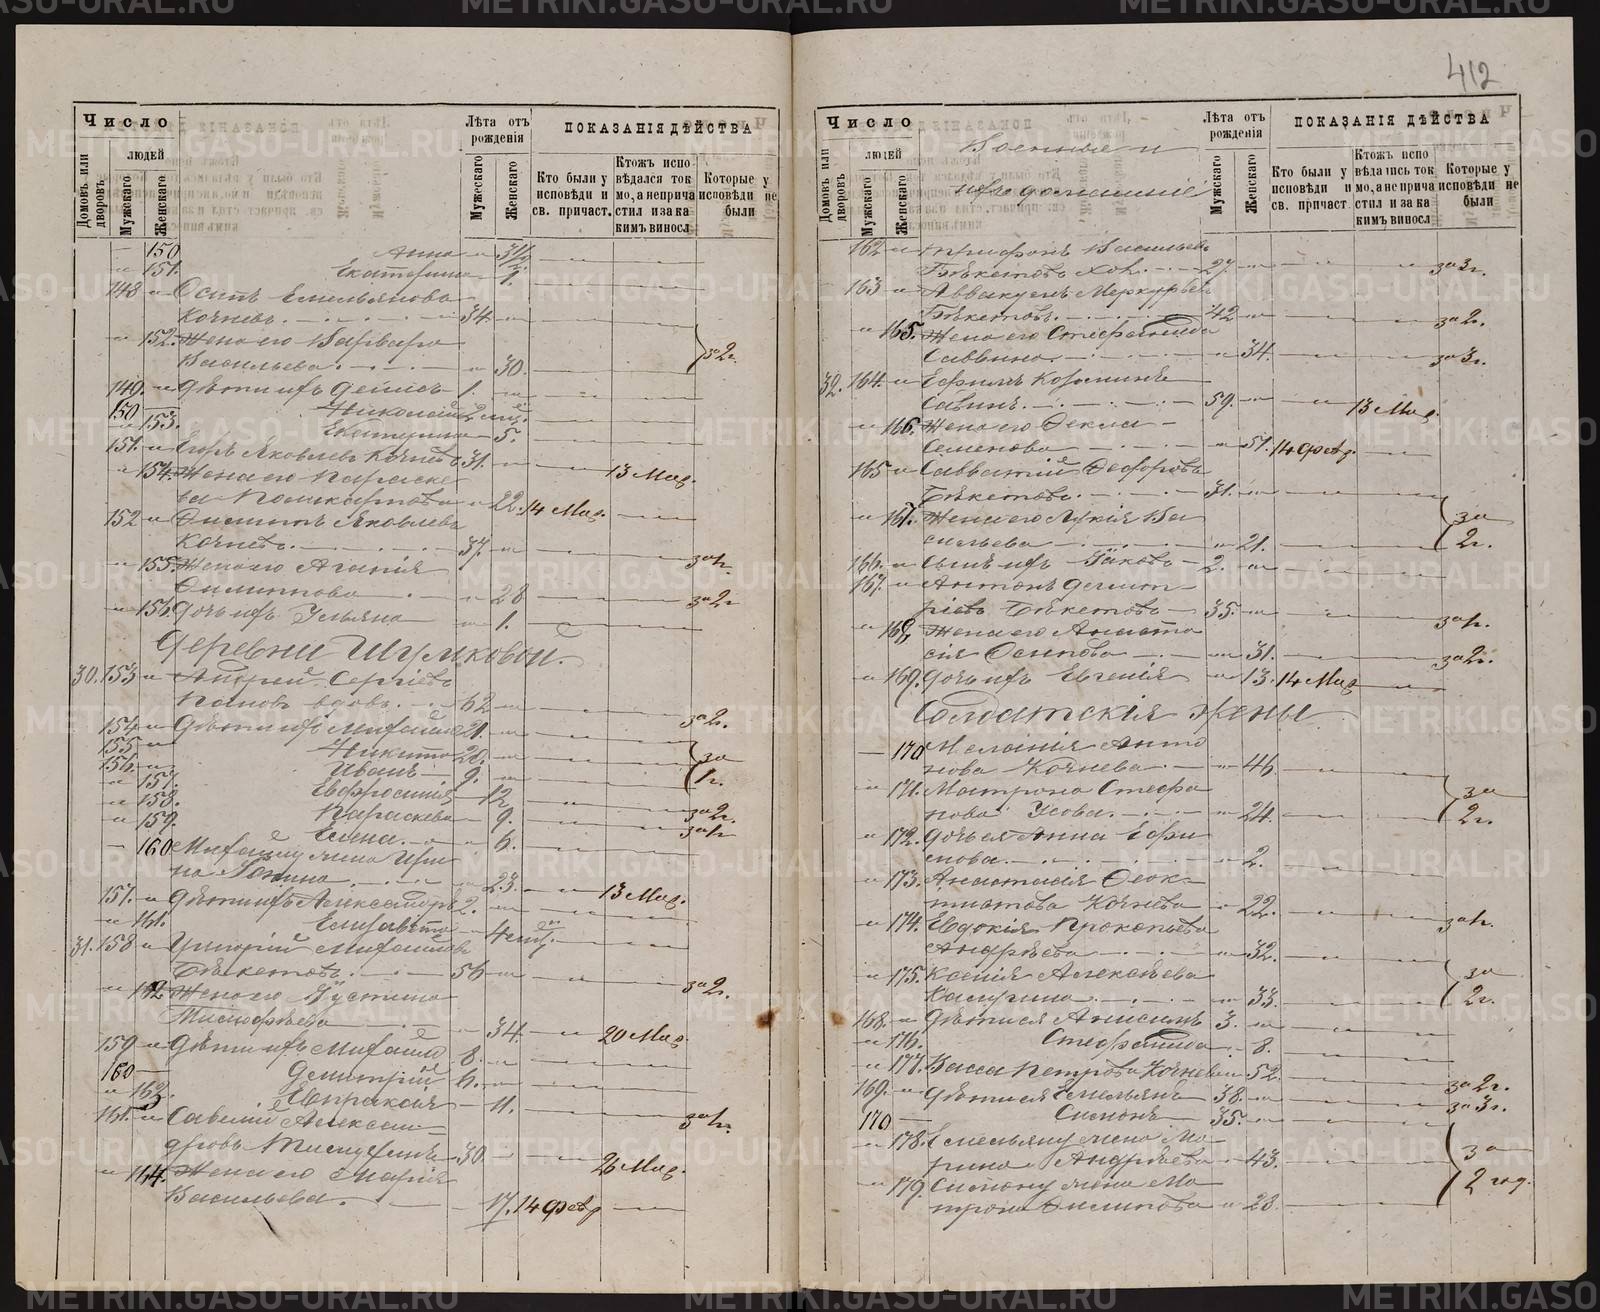 412
Число
людей
Домовъ или дворовъ.
Мужскаго
Женскаго
Лѣта отъ рожденія
Мужескаго
Женскаго
ПОКАЗАНІЯ ДѢЙСТВА
Кто были у исповѣди и св. причаст.
Ктожъ исповѣдался токмо, а непричастил и за каким винosл
Которые у исповѣди не были
150 Анна
151. Екатерина 1.
148 Осипъ Емельяновъ
Кочневъ. 34.
152. Жена его Варвара
Васильева. 30. за 2 г.
149. Дѣти ихъ Денисъ 1.
150 Николай 2 мѣс.
153. Екатерина 5.
151. Егоръ Яковлевъ Кочневъ 31. 13 Мар.
154. Жена его Параске
ва Поликарпова 22. 14 Мар.
152 Филиппъ Яковлевъ
Кочневъ. 37. за 1 г.
155. Жена его Агапія
Филиппова 28 за 2 г.
156. Дочь ихъ Ульяна 1.
Деревни Шумковой.
30. 153 Андрей Сергіевъ
Поповъ вдовъ. 62 за 2 г.
154 Дѣти ихъ Михаилъ 21.
155 Никита 20. за
156. Иванъ 9. 1 г.
157. Евфросинія 12
158. Параскева 9. за 2 г.
159. Елена. 6. за 1 г.
160 Михаилу жена Ири
на 23. 13 Мар.
157. Дѣти ихъ Александръ 2.
161. Елизавета 4 мѣс.
31. 158 Григорій Михайловъ
Бѣкетовъ. 56 за 2 г.
162 Жена его Устинья
Тимофѣева 34. 20 Мар.
159 Дѣти ихъ Михаилъ 8.
160 Дмитрій 6.
163. Евпраксія 11.
161. Савелій Алексан
дровъ 30. 26 Мар. за 1 г.
164. Жена его Марія
Васильева. 17. 14 Февр
Число
людей
Домовъ или дворовъ.
Мужскаго
Женскаго
Военные и
ихъ домашніе
Лѣта отъ рожденія
Мужскаго
Женскаго
ПОКАЗАНІЯ ДѢЙСТВА
Кто были у исповѣди и св. причаст
Ктожъ исповѣдались токмо, а не причастил и за каким винosл
Которые у исповѣди не были
162 Трифонъ Васильевъ
Бѣкетовъ хол. 27. за 3 г.
163 Аввакумъ Меркурьевъ
Бѣкетовъ. 42 за 2 г.
165. Жена его Стефанида
Саввина. 34. за 3 г.
32. 164. Ефимъ Козминъ
Савинъ. 59. 13 Мар.
166. Жена его Фекла
Семенова 51. 14 Февр.
165 Савватій Ѳедоровъ
Бѣкетовъ. 31.
167. Жена его Лукія Ва за
сильева 21. 2 г.
166. Сынъ ихъ Іаковъ 2.
167. Антонъ Дмит
ріевъ Бѣкетовъ 35. за 1 г.
168. Жена его Анаста
сія Осипова 31. за 2 г.
169. Дочь ихъ Евгенія 13. 14 Мар
Солдатскія жены
170 Меланія Анто
нова Кочнева 46
171. Матрона Стефа за
нова Усова. 24. 2 г.
172. Дочь ея Анна Ефи
мова. 2.
173. Анастасія Ѳеок
тистова Кочнева 22. за 1 г.
174. Евдокія Прокопьева
Андрѣева 32.
175. Ксенія Алексѣева за
Калугина. 33. 2 г.
168. Дѣти ея Анисимъ 3.
176. Стефанида 8.
177. Васса Петрова Кочнева 52.
169. Дѣти ея Емельянъ 38. за 2 г.
170 Симонъ 35. за 3 г.
178. Емельяну жена Ма
рина Андрѣева 43. за
179. Симону жена Ма 2 год.
трона Филипова 23.